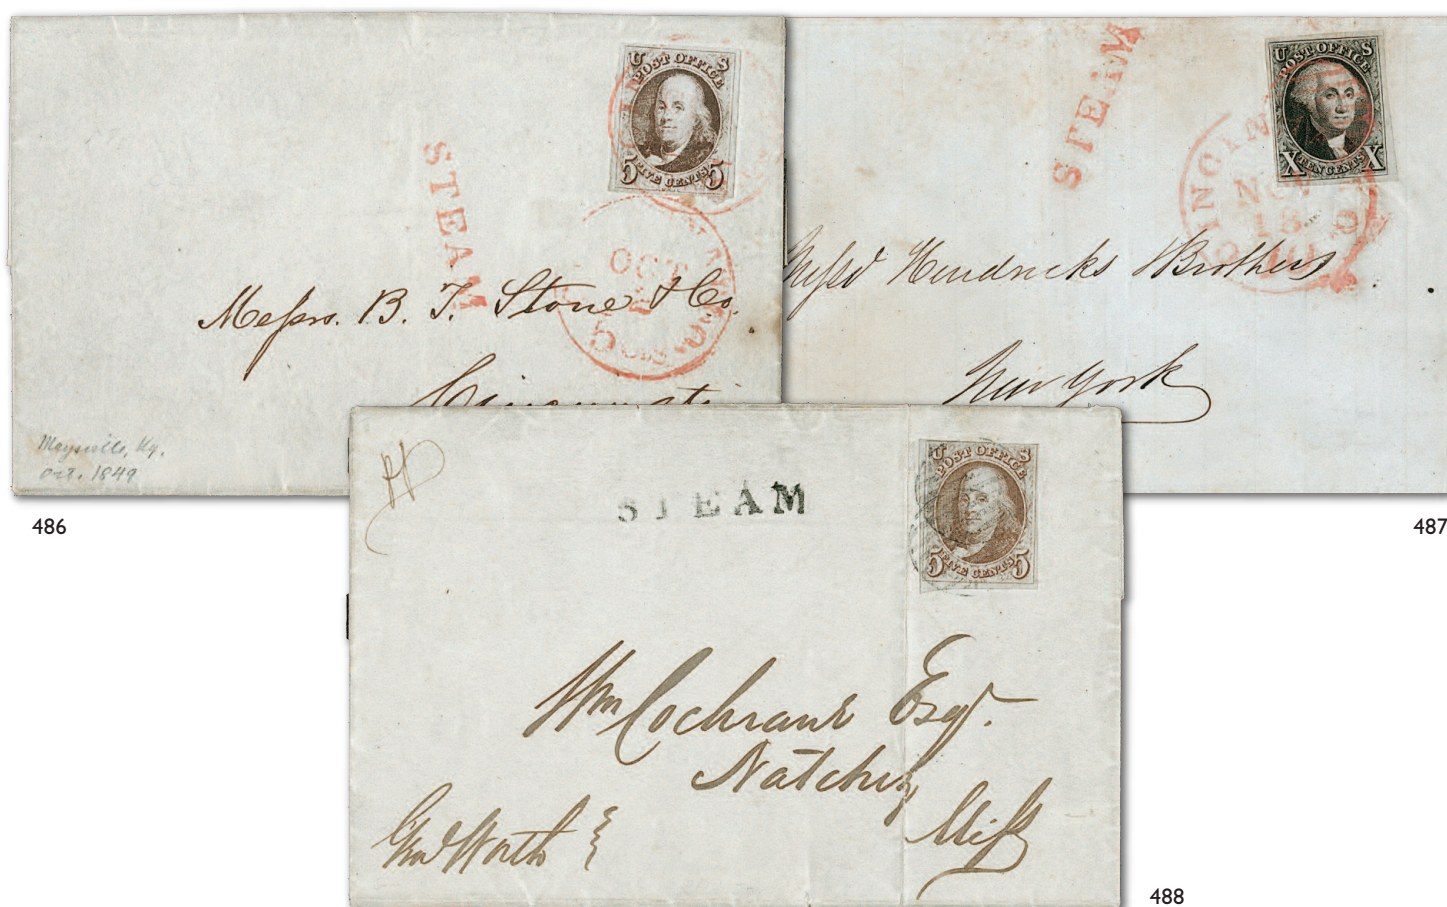 STEAM
U S
POST OFFICE
5 FIVE CENTS 5
OCT
5 Cts
Messrs. B. T. Stone & Co.
Cincinnati
Maysville, Ky.
Oct. 1849
486
STEAM
U S
POST OFFICE
X TEN CENTS X
CINCINNATI
NOV
18
O.
Hendricks Brothers
New York
487
STEAM
U S
POST OFFICE
5 FIVE CENTS 5
Wm Cochrane Esqr.
Natchez
Miss
Genl Worth
488